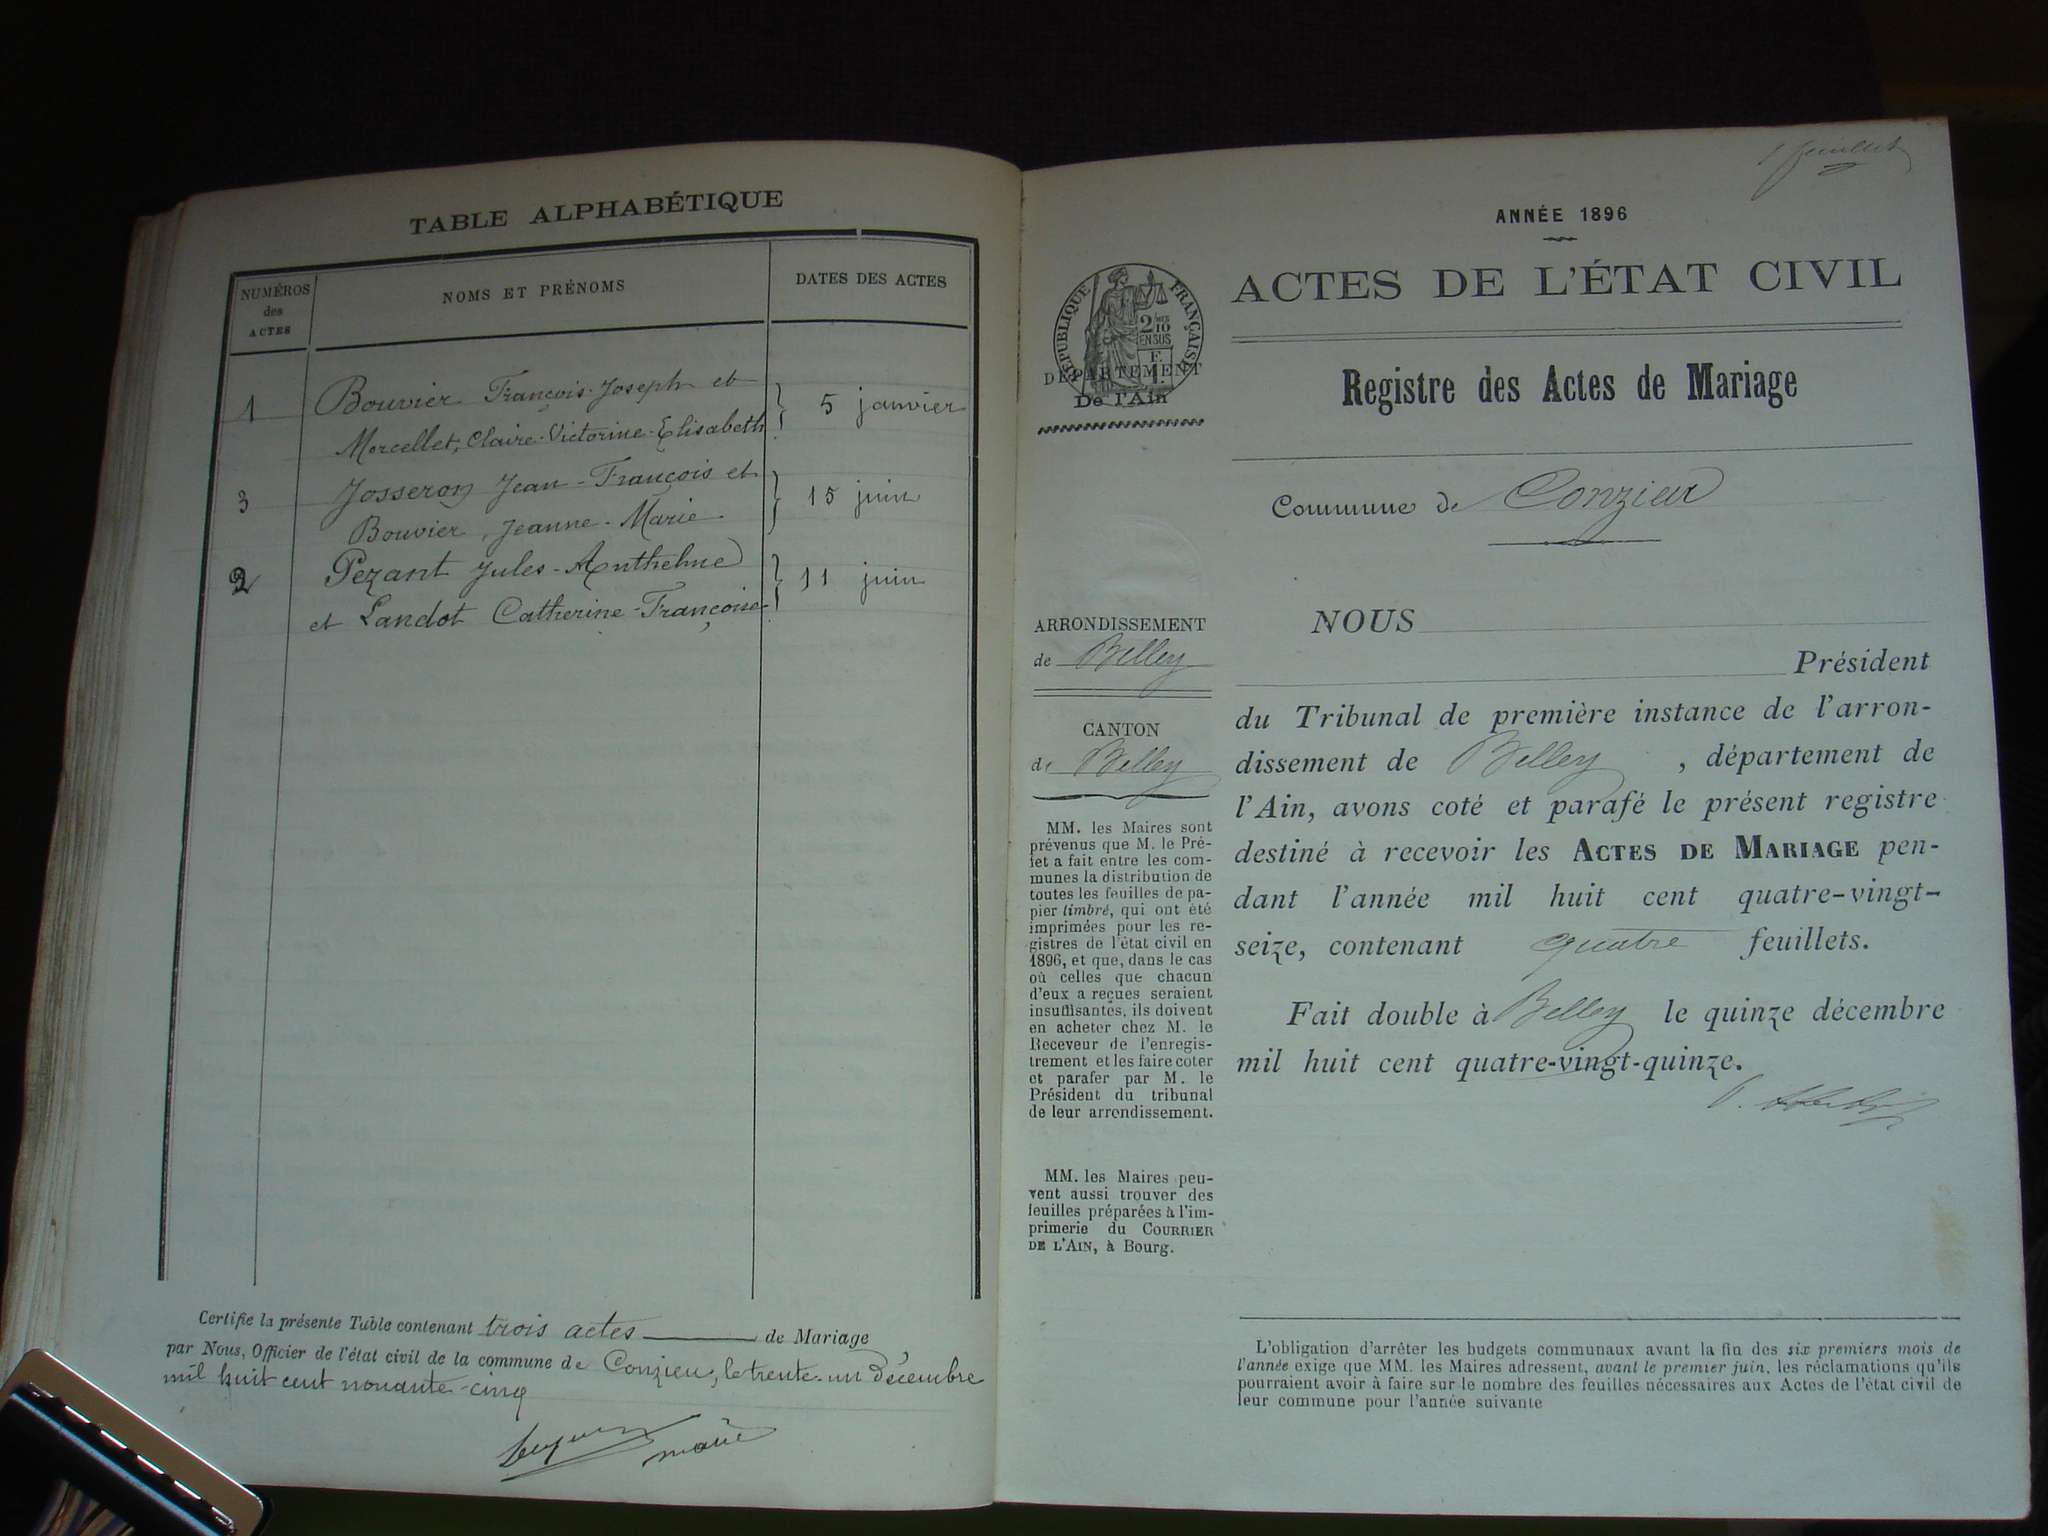 TABLE ALPHABÉTIQUE
NUMÉROS
des
ACTES
NOMS ET PRÉNOMS
DATES DES ACTES
1 Bouvier François-Joseph et 5 janvier
Mercellet, Claire-Victorine-Elisabeth
3 Josseron Jean-François et 15 juin
Bouvier, Jeanne-Marie
2 Pezant Jules-Anthelme 11 juin
et Landot Catherine-Françoise
Certifie la présente Table contenant trois actes de Mariage
par Nous, Officier de l'état civil de la commune de Conzieu, le trente-un Décembre
mil huit cent nonante-cinq
maire
1er feuillet
ANNÉE 1896
ACTES DE L'ÉTAT CIVIL
RÉPUBLIQUE FRANÇAISE
2/10
EN SUS
DÉPARTEMENT
De l'Ain
Registre des Actes de Mariage
Commune de Conzieu
ARRONDISSEMENT
de Belley
CANTON
de Belley
MM. les Maires sont
prévenus que M. le Pré-
fet a fait entre les com-
munes la distribution de
toutes les feuilles de pa-
pier timbré, qui ont été
imprimées pour les re-
gistres de l'état civil en
1896, et que, dans le cas
où celles que chacun
d'eux a reçues seraient
insuffisantes, ils doivent
en acheter chez M. le
Receveur de l'enregis-
trement et les faire coter
et parafer par M. le
Président du tribunal
de leur arrondissement.
MM. les Maires peu-
vent aussi trouver des
feuilles préparées à l'im-
primerie du COURRIER
DE L'AIN, à Bourg.
NOUS
Président
du Tribunal de première instance de l'arron-
dissement de Belley, département de
l'Ain, avons coté et parafé le présent registre
destiné à recevoir les ACTES DE MARIAGE pen-
dant l'année mil huit cent quatre-vingt-
seize, contenant quatre feuillets.
Fait double à Belley le quinze décembre
mil huit cent quatre-vingt-quinze.
L'obligation d'arrêter les budgets communaux avant la fin des six premiers mois de
l'année exige que MM. les Maires adressent, avant le premier juin, les réclamations qu'ils
pourraient avoir à faire sur le nombre des feuilles nécessaires aux Actes de l'état civil de
leur commune pour l'année suivante